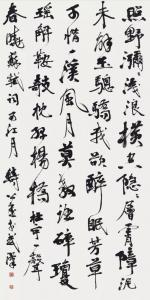 照野瀰瀰淺浪橫空隱隱層霄障泥
未解玉驄驕我欲醉眠芳草
可惜一溪風月莫教踏碎瓊
瑤解鞍欹枕綠楊橋杜宇一聲
春曉蘇軾詞西江月